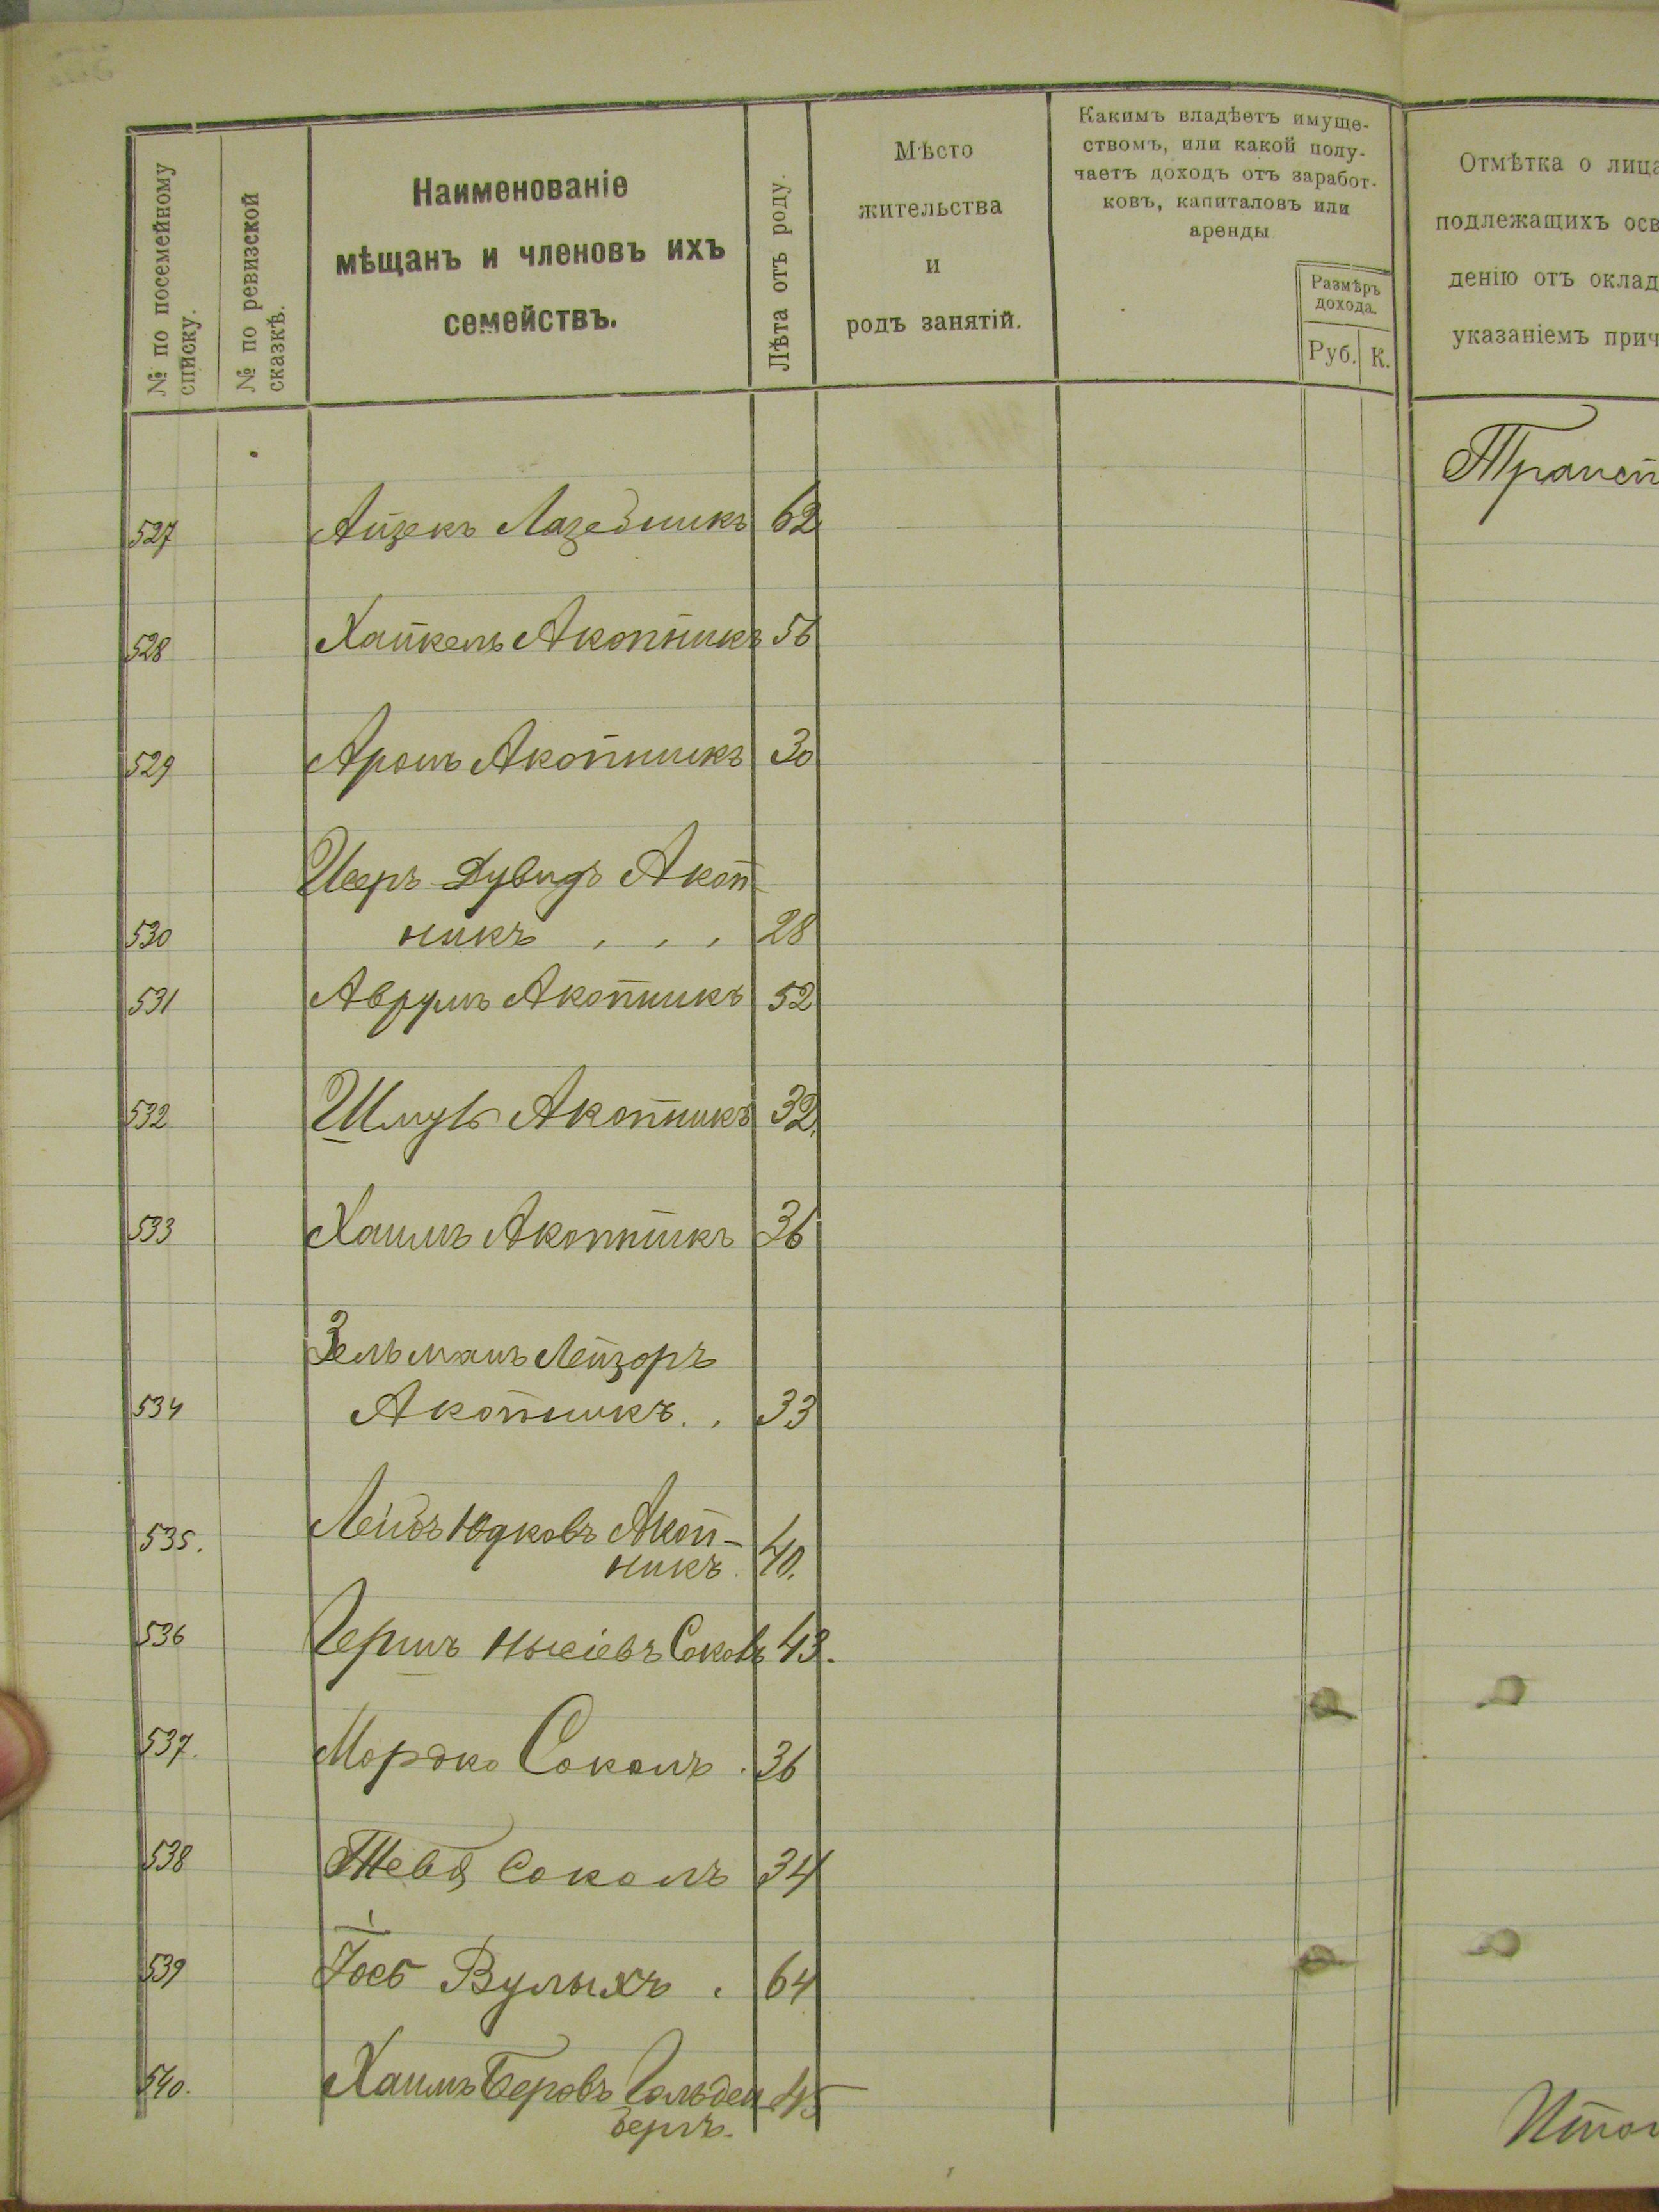 № по посемейному
списку.
№ по ревизской
сказкѣ.
Наименованіе
мѣщанъ и членовъ ихъ
семействъ.
Лѣта отъ роду.
Мѣсто
жительства
и
родъ занятій.
Какимъ владѣетъ имуще-
ствомъ, или какой полу-
чаетъ доходъ отъ заработ-
ковъ, капиталовъ или
аренды
Размѣръ
дохода.
Руб. К.
Отмѣтка о лица
подлежащихъ осв
денію отъ оклад
указаніемъ прич
Трансп
527 Айзекъ Лазебникъ 62
528 Хайкель Акопникъ 56
529 Аронъ Акопникъ 30
Иеръ Дувидъ Акоп-
530 никъ 28
531 Аврумъ Акопникъ 52
532 Шмуль Акопникъ 32.
533 Хаимъ Акопникъ 36
Зельманъ Лейзоръ
534 Акопникъ . . 33
535. Лейбъ Юдковъ Акоп-
никъ. 40.
536 Гершъ Нысіевъ 43.
537. Мордко Соколъ . 36
538 Тевя Соколъ 34
539 Іосъ Вулыхъ . 64
540. Хаимъ Беровъ Гольден 45
бергъ.
Итог